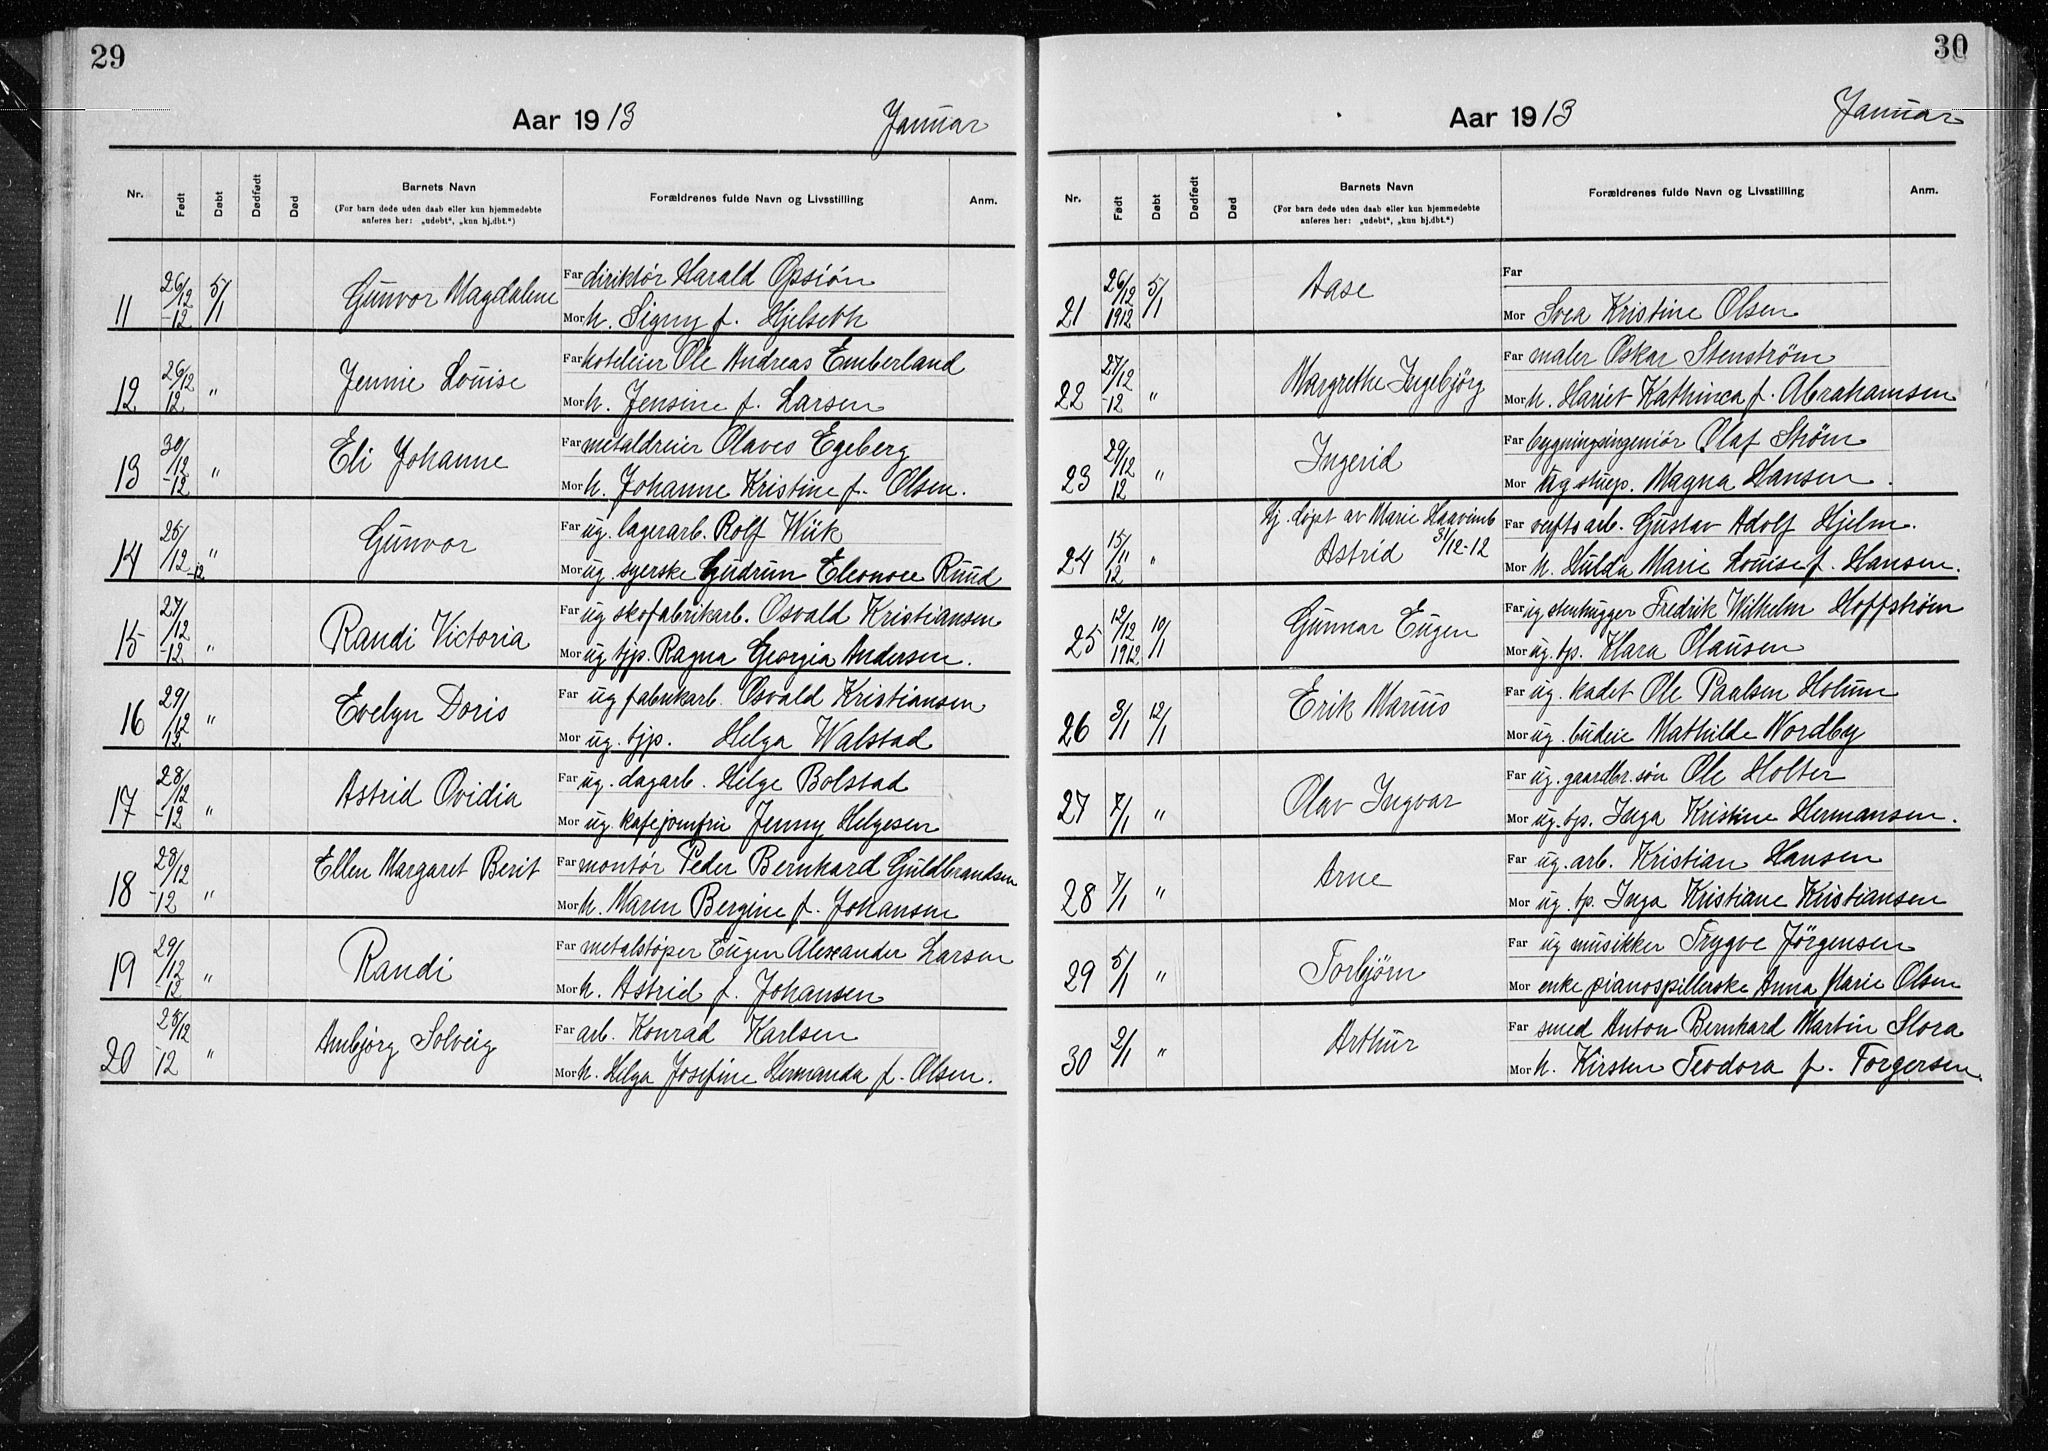 29
Aar 1913 Januar
Nr. Født Døbt Dødfødt Død Barnets Navn Forældrenes fulde Navn og Livsstilling Anm.
(For barn døde uden daab eller kun hjemmedøbte
anføres her: „udøbt“, „kun hj.dbt.“)
26/12 5/1 Gunvor Magdalene Far diriktør Harald Opsiøn
11 -12 Mor h. Signy f. Hjelseth
26/12 Jennie Louise Far hoteleier Ole Andreas Emberland
12. 12 " Mor h. Jensine f. Larsen
30/12 Eli Johanne Far metaldreier Olaves Egeberg
13 -12 " Mor h. Johanne Kristine f. Olsen.
25/12 " Gunvor Far ug. lagerarb. Rolf Wiik
14 -12 Mor ug. syerske Gudrun Eleonore Ruud
27/12 Randi Victoria Far ug skofabrikarb. Osvald Kristiansen
15 -12 " Mor ug tjp. Ragna Georgia Andersen.
29/12 Evelyn Doris Far ug fabrikarb. Osvald Kristiansen
16 12 " Mor ug. tjp. Helga Walstad
28/12 Astrid Ovidia Far ug. dagarb. Helge Bolstad
17 -12 " Mor ug. kafejomfru Jenny Helgesen
28/12 Ellen Margaret Berit Far montør Peder Bernhard Guldbrandsen
18 -12 " Mor h. Maren Bergine f. Johansen
29/12 Randi Far metalstøper Eugen Alexander Larsen
19 -12 " Mor h. Astrid f. Johansen
25/12 Ambjørg Solveig Far arb. Konrad Karlsen
20 -12 " Mor h. Helga Josefine Hermanda f. Olsen.
30
Aar 1913 Januar
Nr. Født Døbt Dødfødt Død Barnets Navn Forældrenes fulde Navn og Livsstilling Anm.
(For barn døde uden daab eller kun hjemmedøbte
anføres her: „udøbt“, „kun hj.dbt.“)
26/12 5/1 Aase Far
21 1912 Mor Svea Kristine Olsen
27/12 Margrethe Ingebjörg Far maler Oskar Stenström
22 -12 " Mor h. Hariet Kathinca f. Abrahamsen
29/12 Ingerid Far bygningsingeniör Olaf Ström
23 12 " Mor ug stuep. Magna Hansen.
Hj. døpt av Marie
15/11 Astrid 31/12-12 Far verftsarb. Gustav Adolf Hjelm.
24 12 " Mor h. Hulda Marie Louise f. Hansen.
12/12 10/1 Gunnar Eugen Far ug stenhugger Fredrik Wilhelm Hoffstrøm
25 1912 Mor ug. tp. Klara Olausen
Erik Marius Far ug. kadet Ole Paalsen Holum
26 3/1 12/1 Mor ug. budeie Mathilde Nordby
Olav Ingvar Far ug. gaardbr. søn Ole Holter
27 7/1 " Mor ug. tp. Inga Kristine Hermansen.
Arne Far ug. arb. Kristian Hansen
28 7/1 " Mor ug. tp. Inga Kristiane Kristiansen
Torbjørn Far ug musikker Trygve Jørgensen
29 5/1 " Mor enke pianospillerske Anna Marie Olsen
Arthur Far smed Anton Bernhard Martin Slora
30 2/1 " Mor h. Kirsten Teodora f. Torgersen.